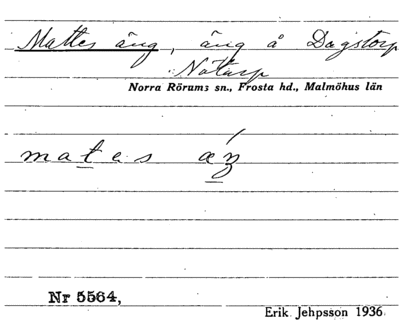 Mattes äng, äng å Dagstorp
Nötarp
Norra Rörums sn., Frosta hd., Malmöhus län
mates æŋ
Nr 5564,
Erik Jehpsson 1936.